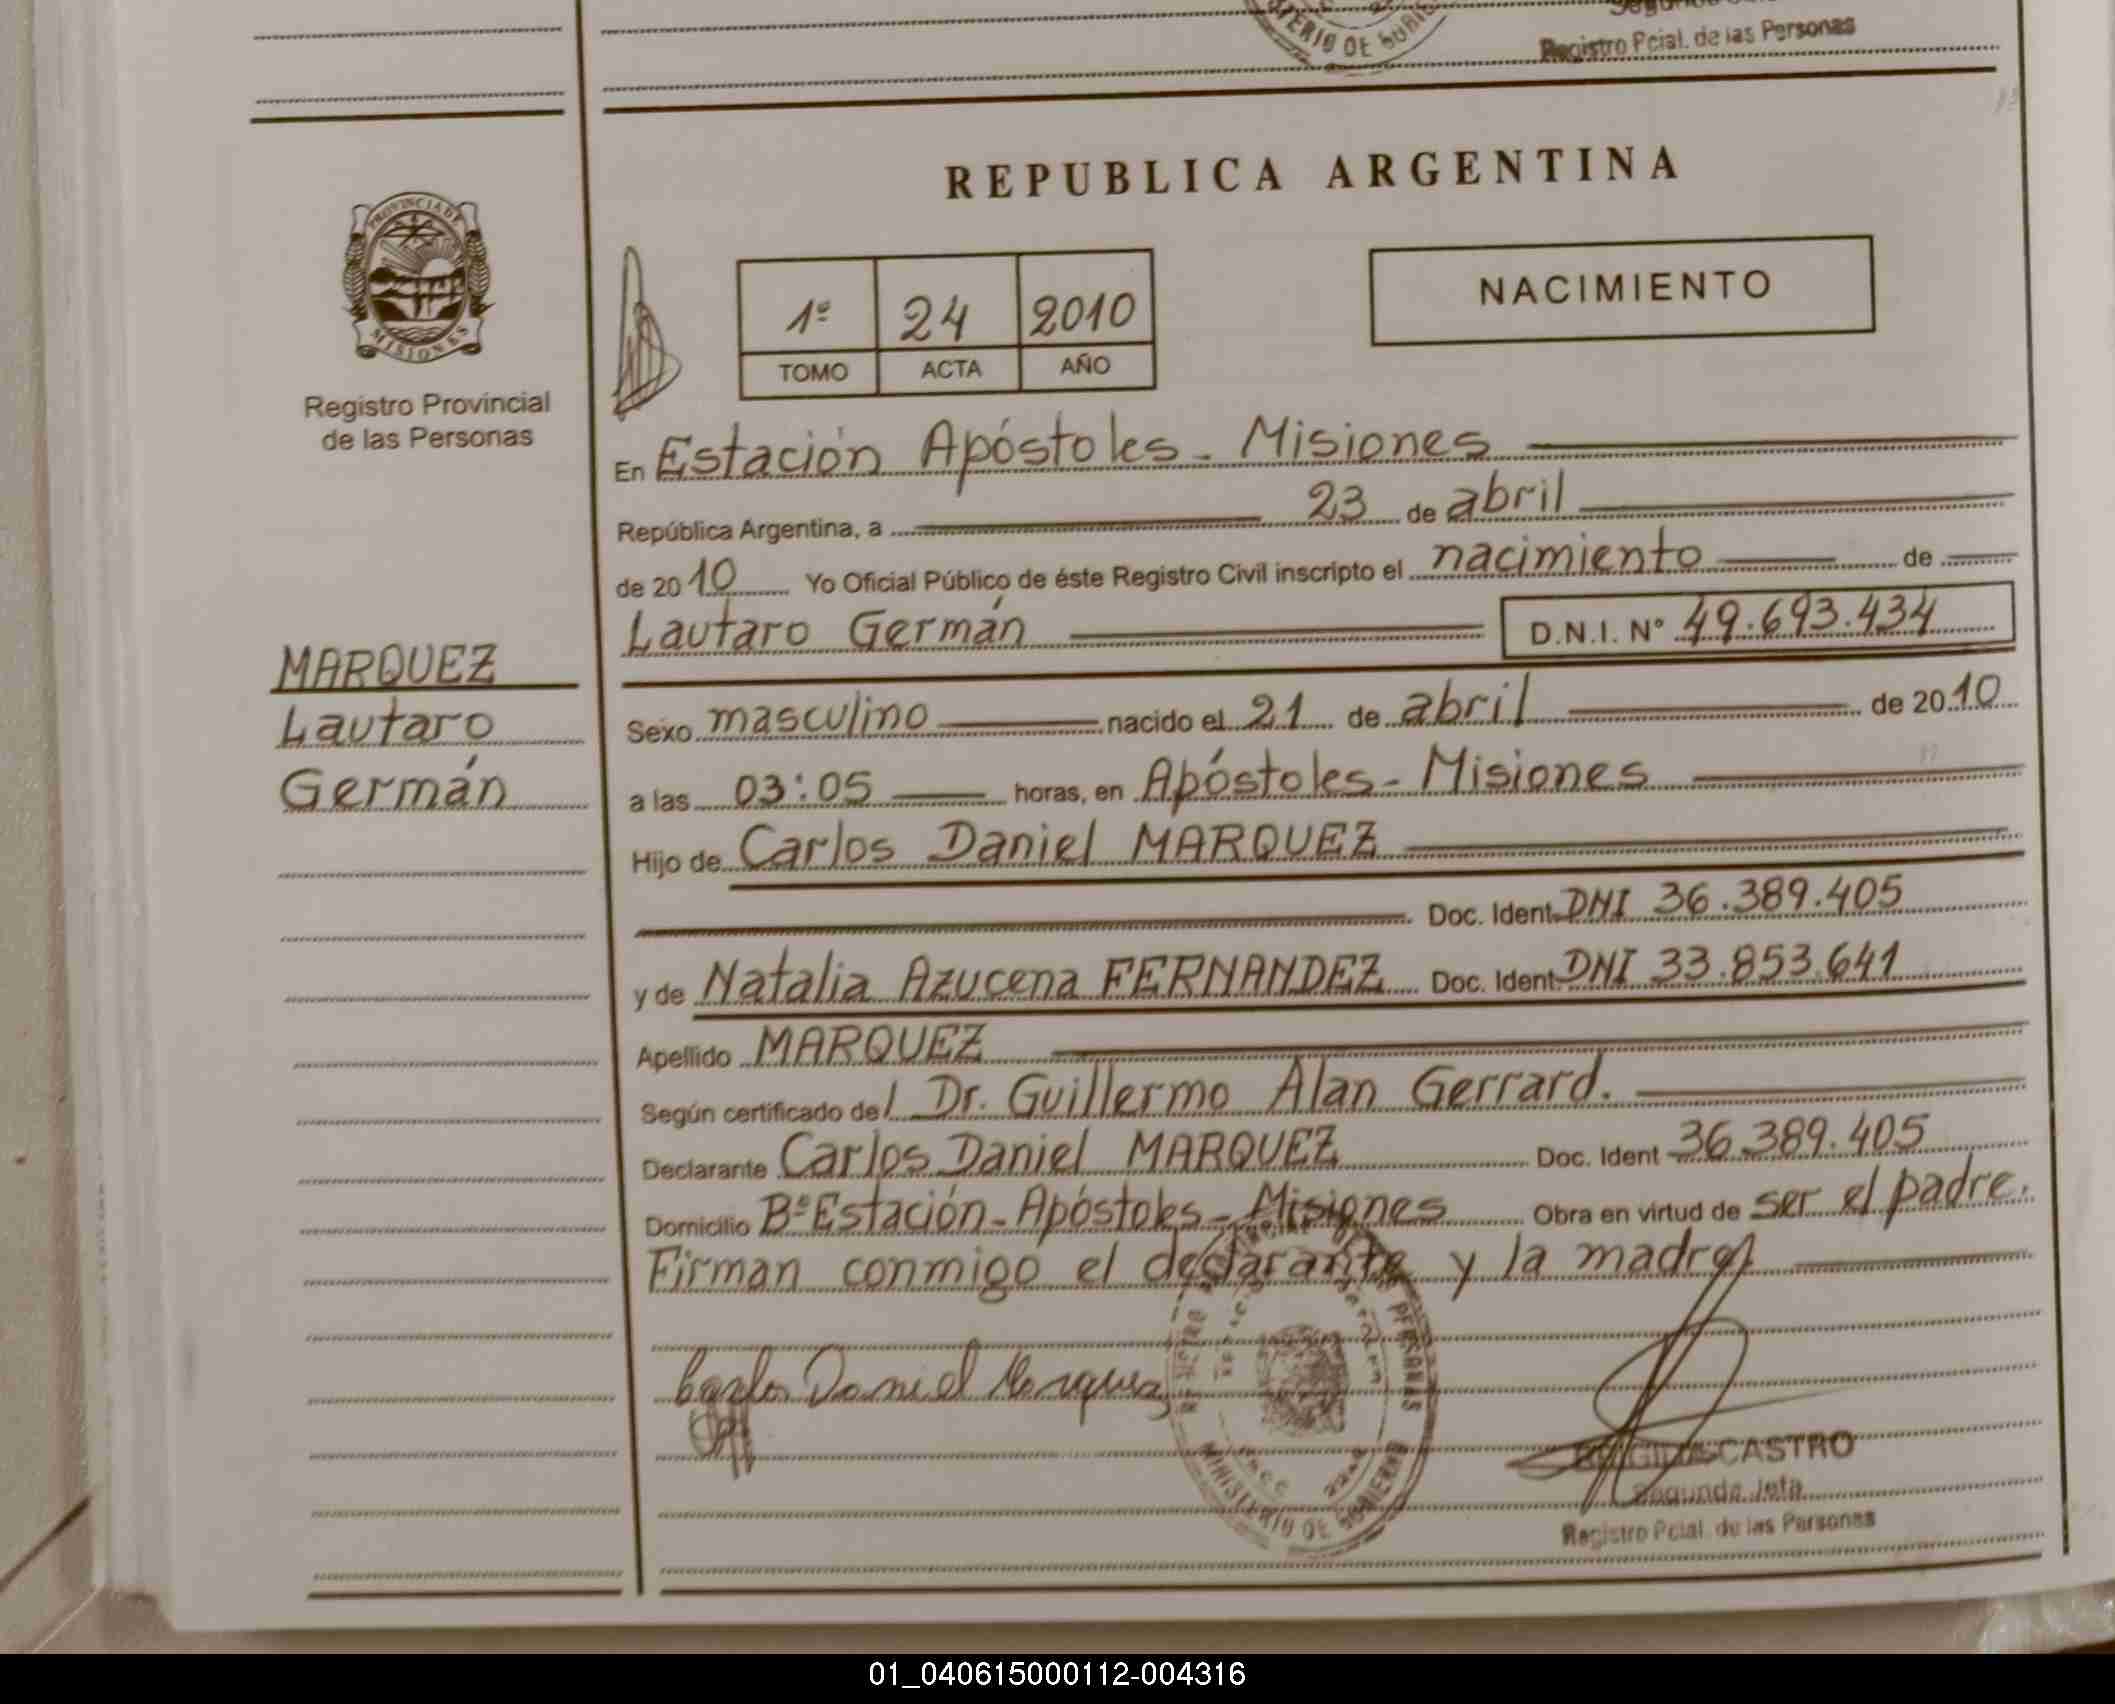 Registro Pcial. de las Personas
REPUBLICA ARGENTINA
PROVINCIA DE
MISIONES
Registro Provincial
de las Personas
1º 24 2010
TOMO ACTA AÑO
NACIMIENTO
En Estación Apóstoles - Misiones
República Argentina, a 23 de abril
de 2010 Yo Oficial Público de éste Registro Civil inscripto el nacimiento de
Lautaro Germán D.N.I. Nº 49.693.434
MARQUEZ
Lautaro
Germán
Sexo masculino nacido el 21 de abril de 2010
a las 03:05 horas, en Apóstoles - Misiones
Hijo de Carlos Daniel MARQUEZ
Doc. Ident. DNI 36.389.405
y de Natalia Azucena FERNANDEZ Doc. Ident. DNI 33.853.641
Apellido MARQUEZ
Según certificado del Dr. Guillermo Alan Gerrard.
Declarante Carlos Daniel MARQUEZ Doc. Ident 36.389.405
Domicilio Bº Estación - Apóstoles - Misiones Obra en virtud de ser el padre.
Firman conmigo el declarante y la madre
Carlos Daniel Marquez
MINISTERIO DE GOBIERNO
CASTRO
Segunda Jefa
Registro Pcial. de las Personas
01_040615000112-004316